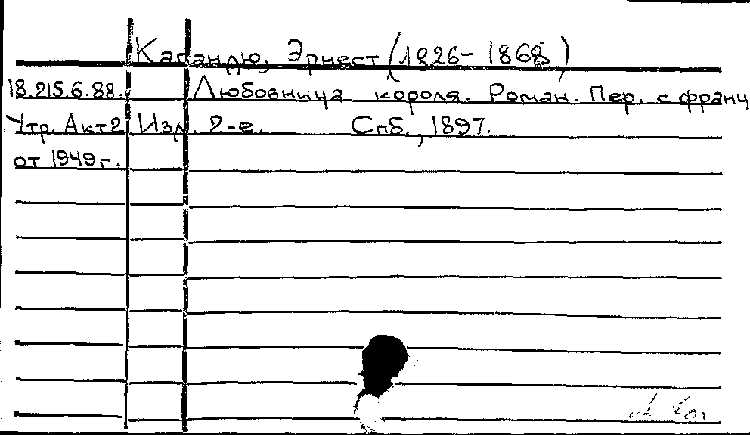 Капандю, Эрнест (1826-1868)
18.215.6.88. Любовница короля. Роман. Пер. с франц
Утр. Акт 2 Изд. 2-е. Спб., 1897.
от 1949 г.